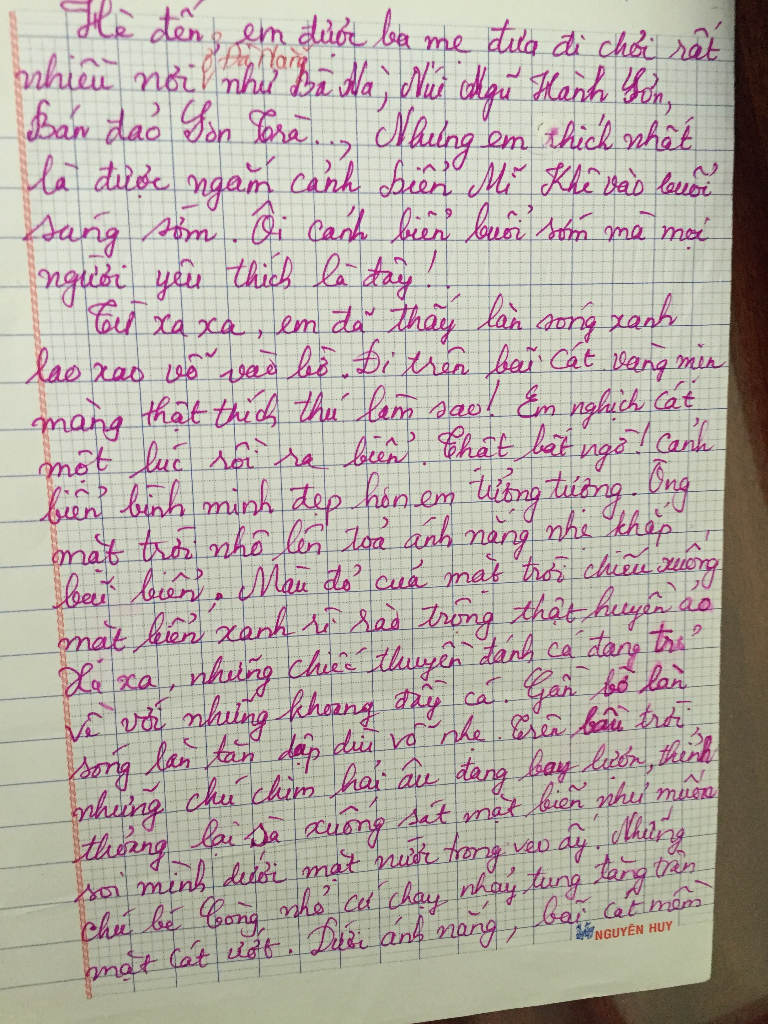 Hè đến, em được ba mẹ đưa đi chơi rất
ở Đà Nẵng
nhiều nơi như Bà Nà, Núi Ngũ Hành Sơn,
Bán đảo Sơn Trà..., Nhưng em thích nhất
là được ngắm cảnh biển Mĩ Khê vào buổi
sáng sớm. Ôi cảnh biển buổi sớm mà mọi
người yêu thích là đây!
Từ xa xa, em đã thấy làn sóng xanh
lao xao vỗ vào bờ. Đi trên bãi cát vàng mịn
màng thật thích thú làm sao! Em nghịch cát
một lúc rồi ra biển. Thật bất ngờ! Cảnh
biển bình minh đẹp hơn em tưởng tượng. Ông
mặt trời nhô lên toả ánh nắng nhẹ khắp
bãi biển. Màu đỏ của mặt trời chiếu xuống
mặt biển xanh rì rào trông thật huyền ảo
Xa xa, những chiếc thuyền đánh cá đang trở
về với những khoang đầy cá. Gần bờ làn
sóng lăn tăn dập dìu vỗ nhẹ. Trên bầu trời
những chú chim hải âu đang bay lượn, thỉnh
thoảng lại sà xuống sát mặt biển như muốn
soi mình dưới mặt nước trong veo ấy. Những
chú bé Còng nhỏ cứ chạy nhảy tung tăng trên
mặt cát ướt. Dưới ánh nắng, bãi cát mềm
NGUYÊN HUY